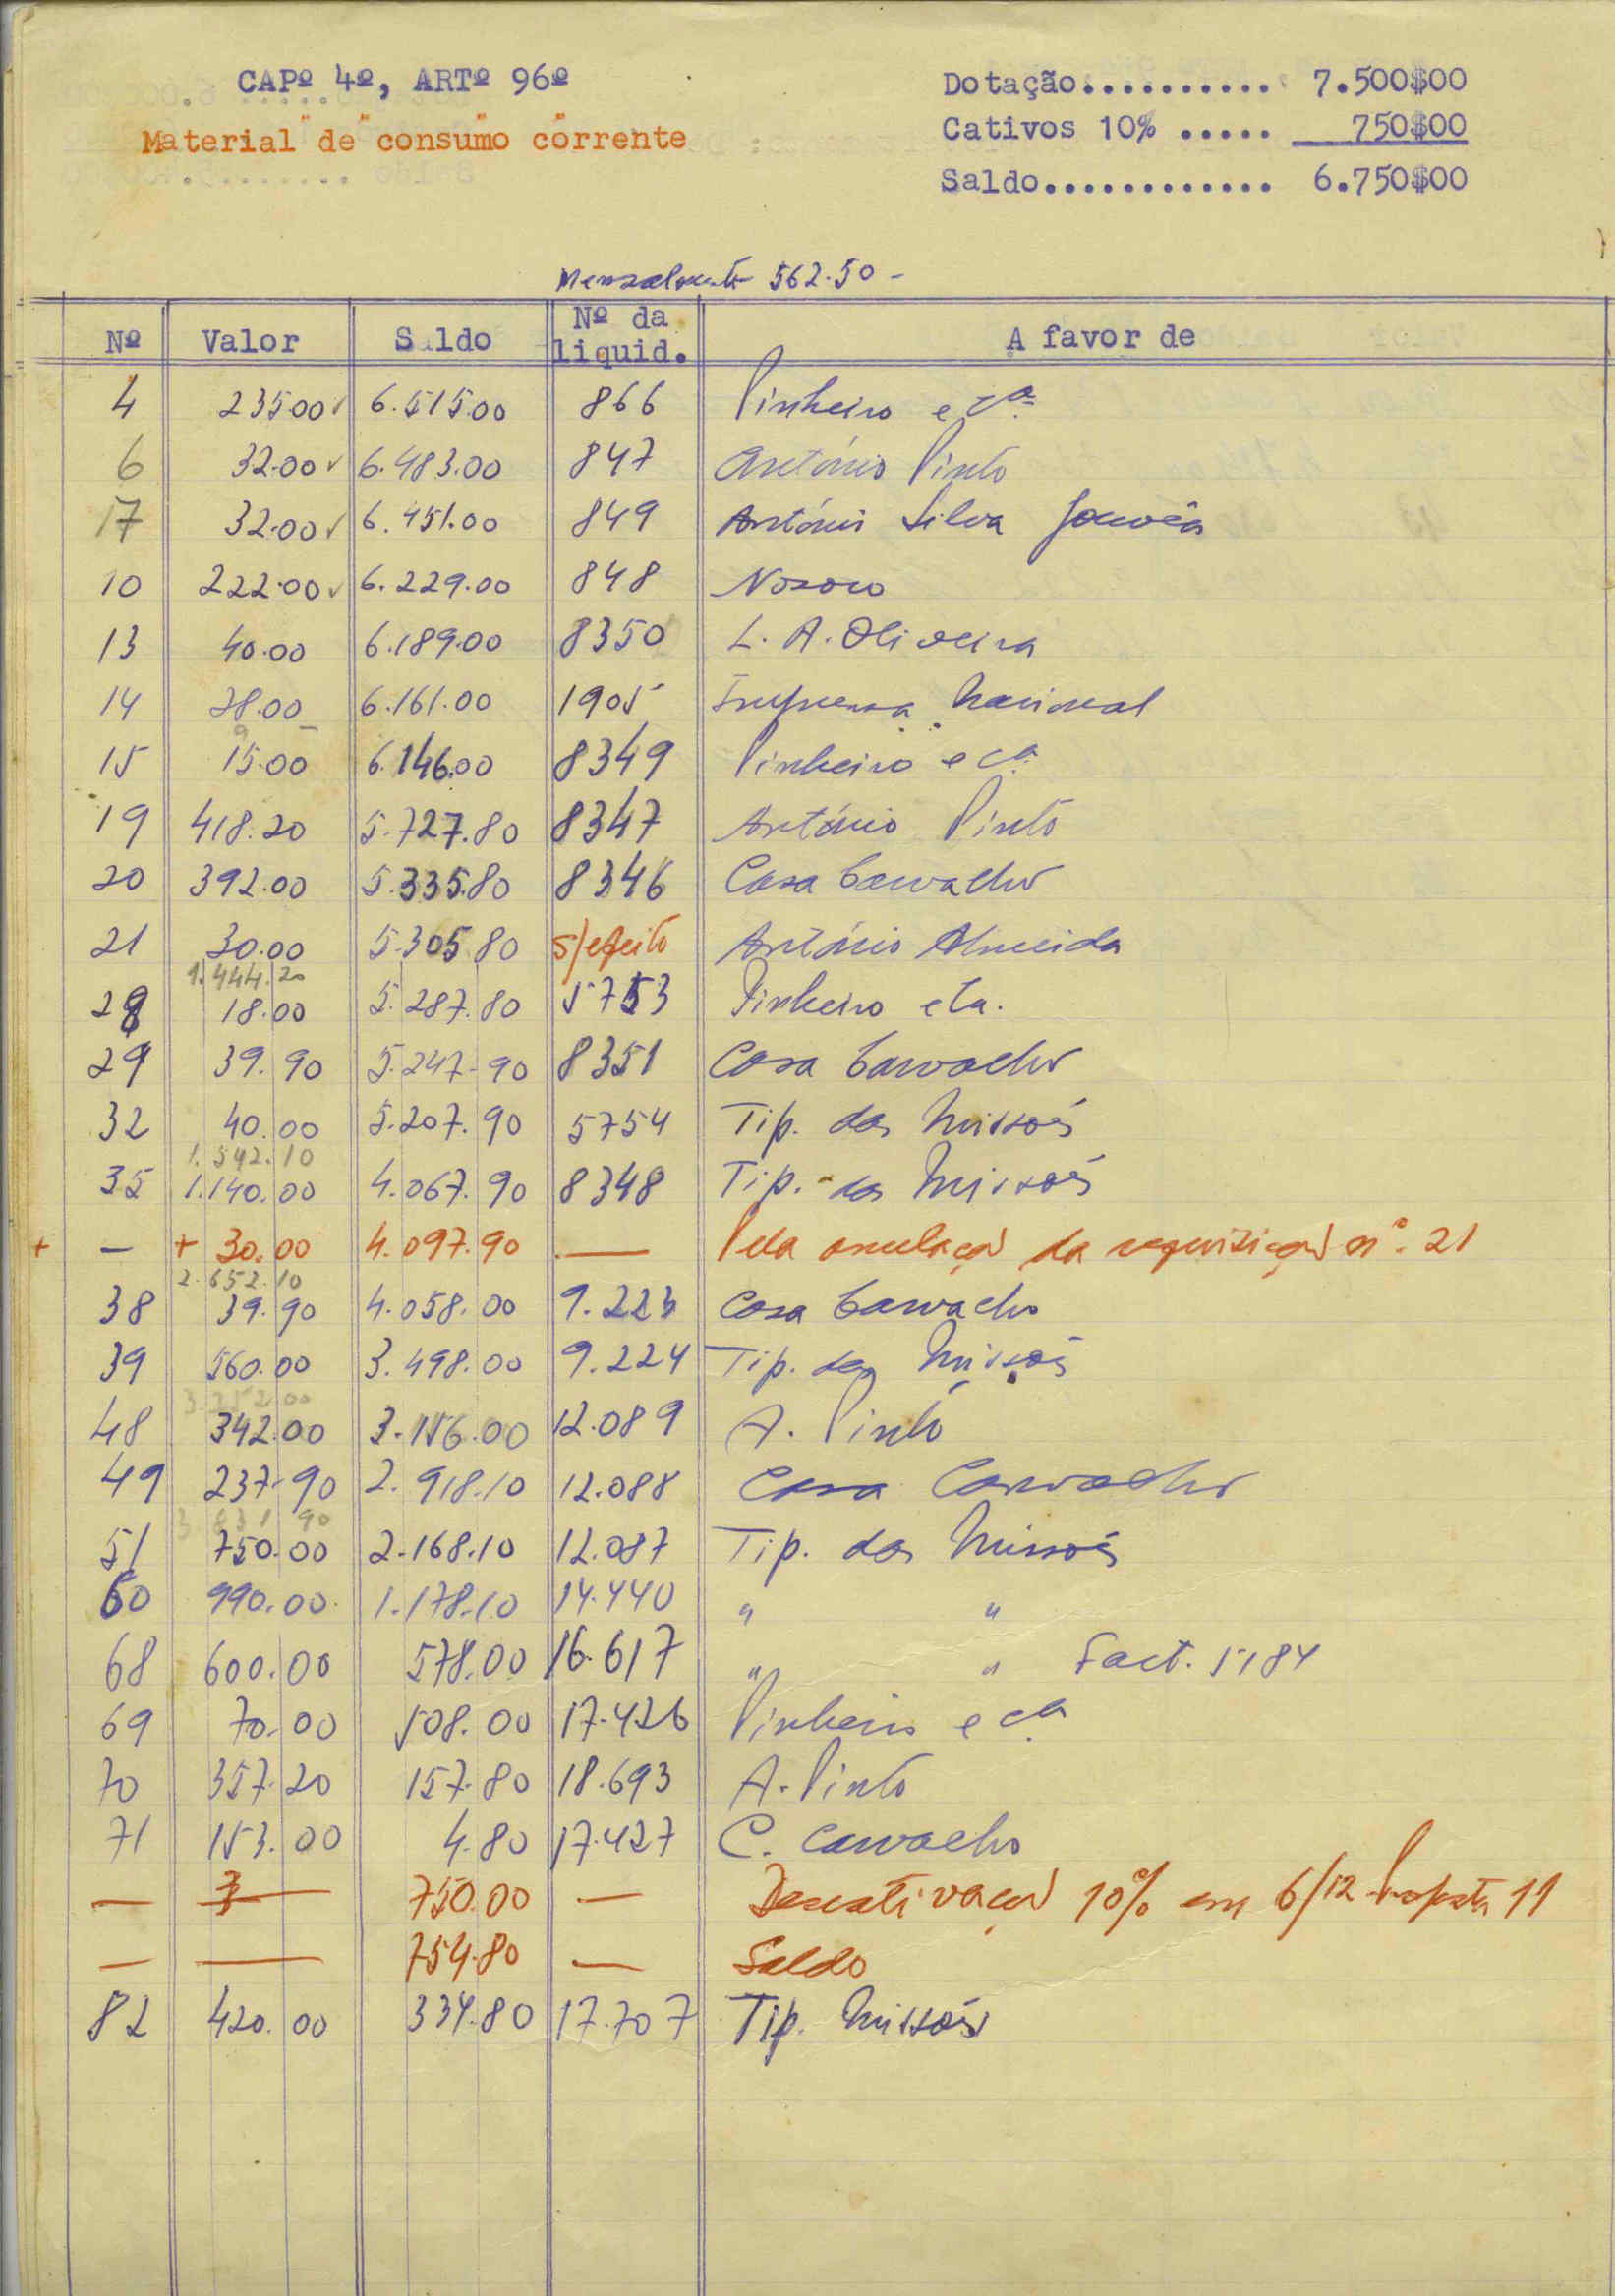 CAPº 4º, ARTº 96º
Material de consumo corrente
Dotação.......... 7.500$00
Cativos 10% ..... 750$00
Saldo............ 6.750$00
Mensalmente 562.50 -
Nº Valor Saldo Nº da liquid. A favor de
4 235.00 6.515.00 866 Pinheiro e Cª
6 32.00 6.483.00 847 António Pinto
17 32.00 6.451.00 849 António Silva Gouvêa
10 222.00 6.229.00 848 Nosoco
13 40.00 6.189.00 8350 L. A. Oliveira
14 28.00 6.161.00 1905 Imprensa Nacional
15 15.00 6.146.00 8349 Pinheiro e Cª
19 418.20 5.727.80 8347 António Pinto
20 392.00 5.335.80 8346 Casa Carvalho
21 30.00 5.305.80 s/efeito António Almeida
1.444.20
28 18.00 5.287.80 5753 Pinheiro e Ca.
29 39.90 5.247.90 8351 Casa Carvalho
32 40.00 5.207.90 5754 Tip. das Missões
1.542.10
35 1.140.00 4.067.90 8348 Tip. das Missões
+ — + 30.00 4.097.90 — Pela anulação da requisição nº. 21
2.652.10
38 39.90 4.058.00 9.223 Casa Carvalho
39 560.00 3.498.00 9.224 Tip. das Missões
3.252.00
48 342.00 3.156.00 12.089 A. Pinto
49 237.90 2.918.10 12.088 Casa Carvalho
3.831.90
51 750.00 2.168.10 12.087 Tip. das Missões
60 990.00 1.178.10 14.440 " "
68 600.00 578.00 16.617 " " Fact. 5184
69 70.00 508.00 17.426 Pinheiro e Cª
70 357.20 157.80 18.693 A. Pinto
71 153.00 4.80 17.427 C. Carvalho
— — 750.00 — Descativação 10% em 6/12 Proposta 11
— — 754.80 — Saldo
82 420.00 334.80 17.707 Tip. Missões